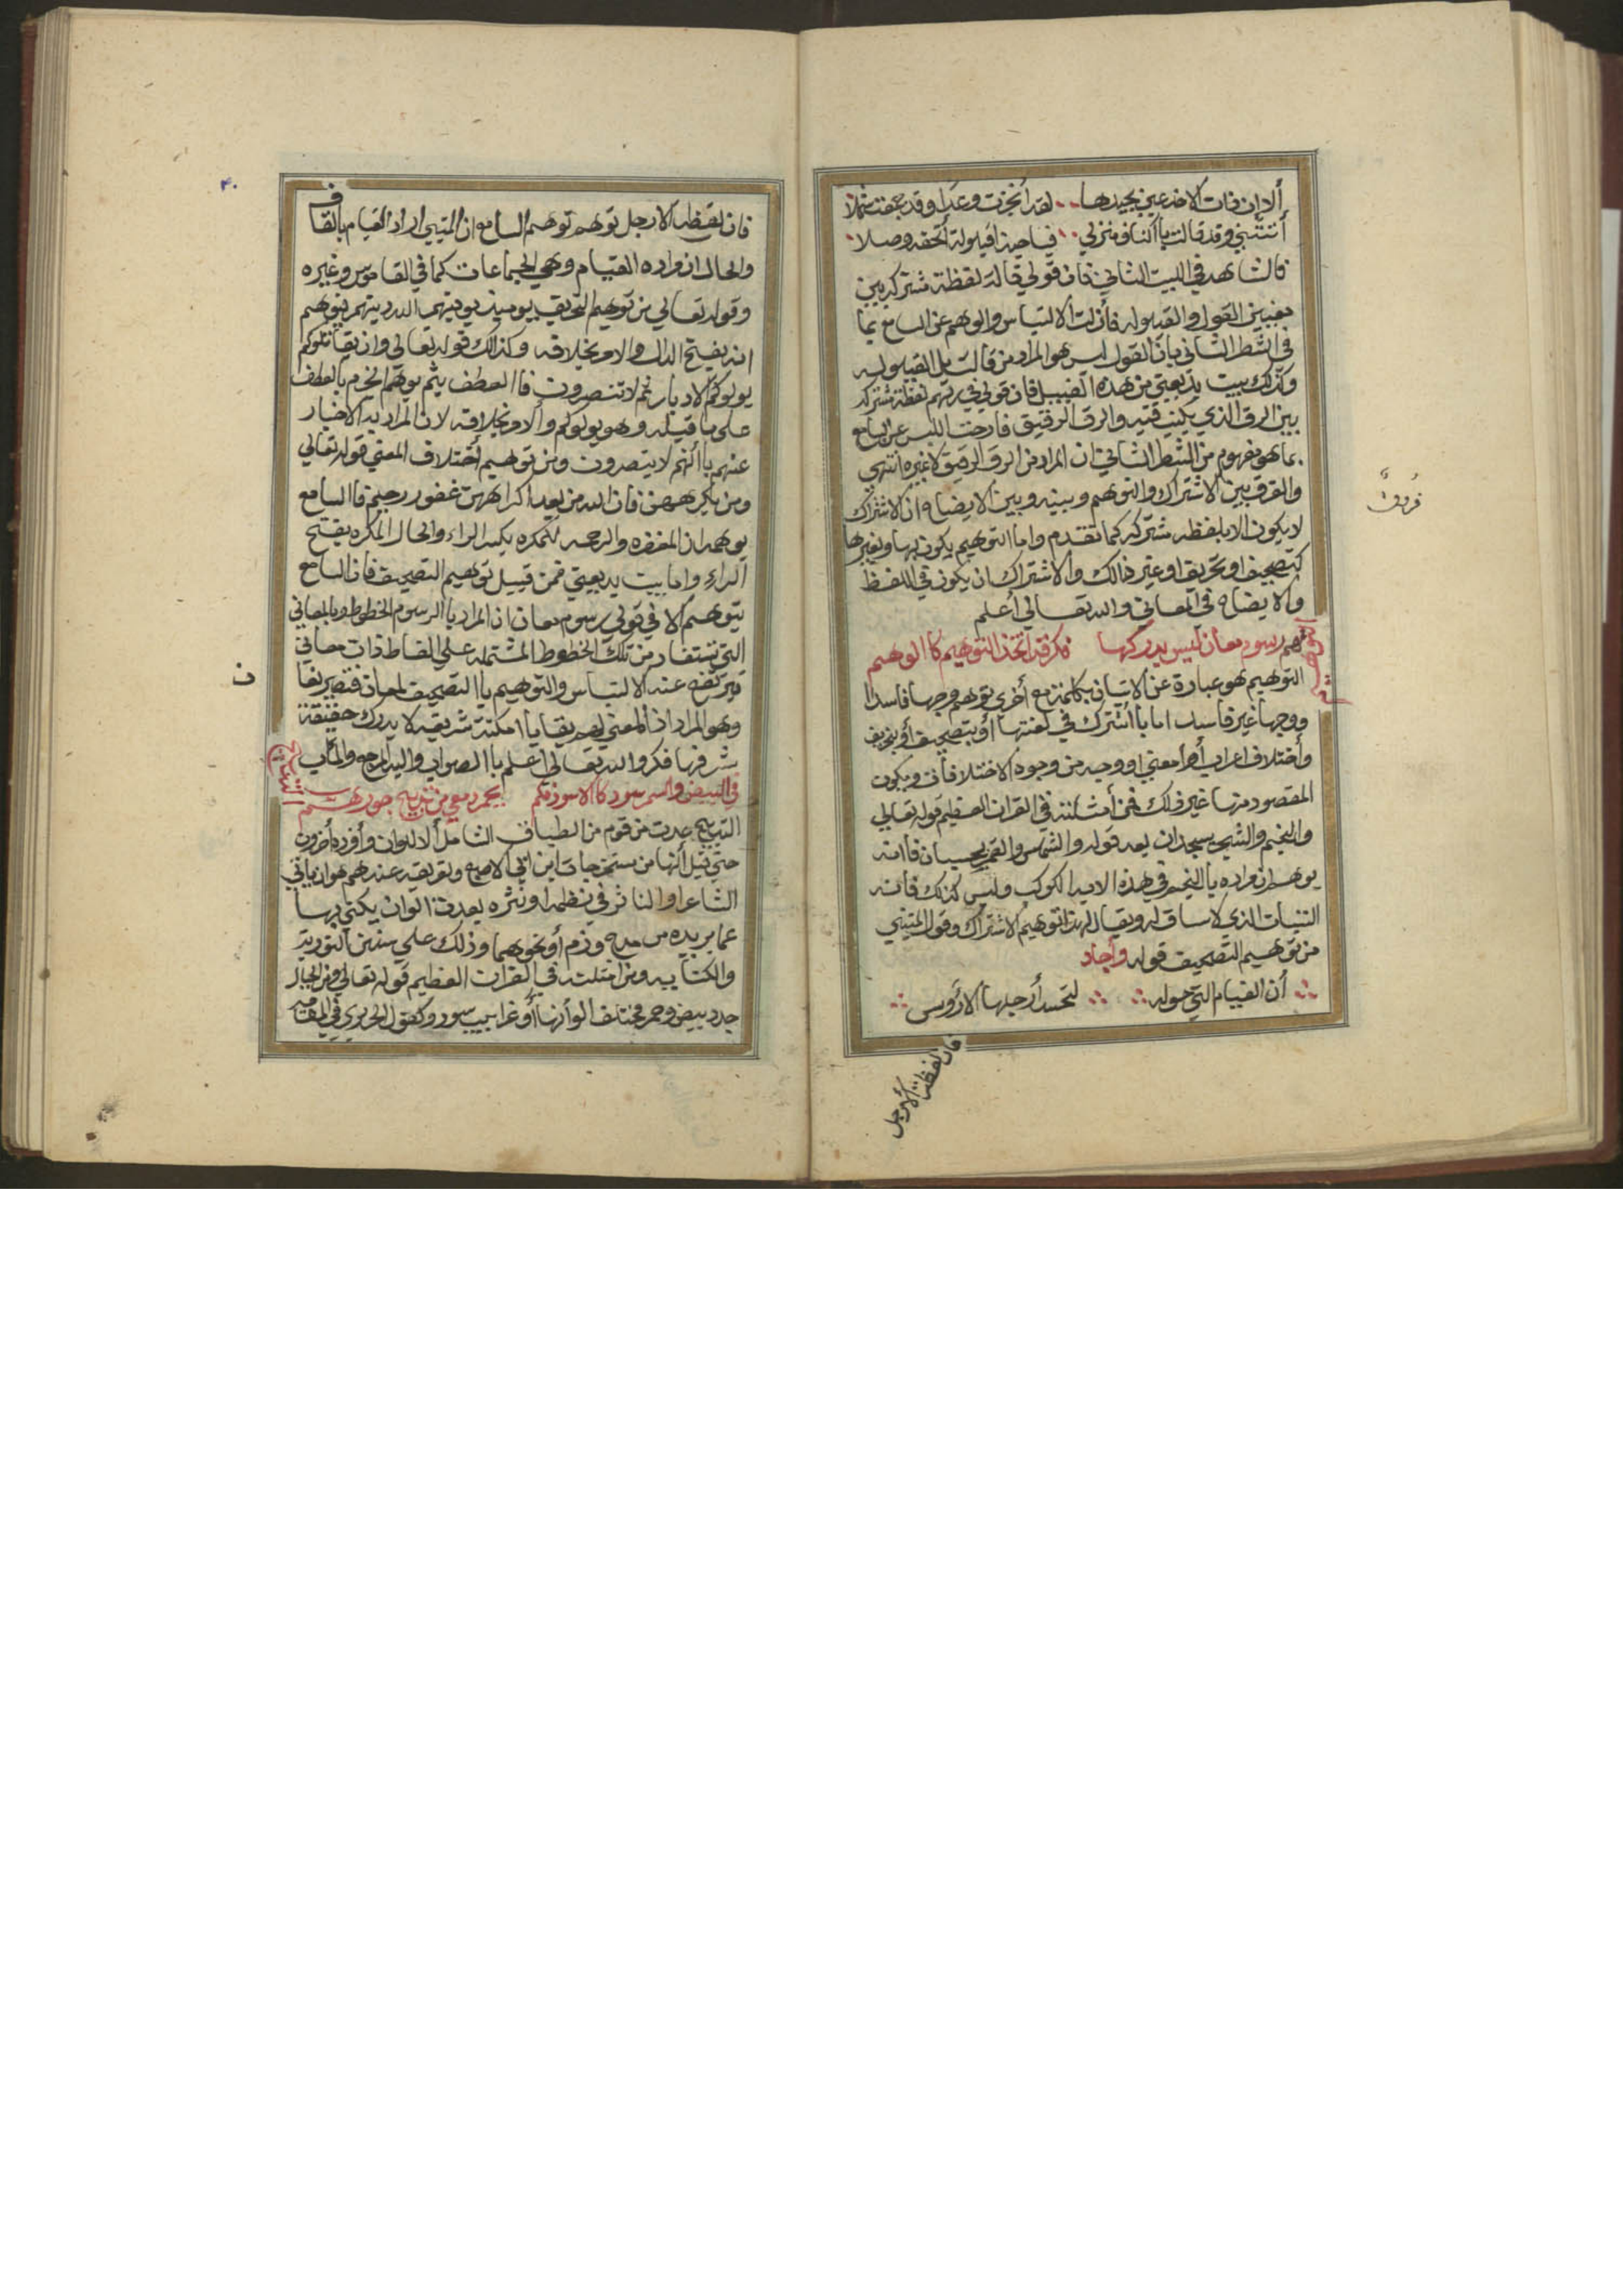 ألا إن ذات الاخذ عيني بجيدها لقد أنجزت وعدا وقد جمعت شملا
أتتني وقد قالت بأكناف منزلي فيا حبذا قيلولة أتحفت وصلا
فالشاهد في البيت الثاني فان قولي قالت لفظة مشتركه بين
معنيين القول والقيلوله فأزلت الالتباس والوهم عن السامع بما
في الشطر الثاني بأن القول ليس هو المراد من قالت بل القيلوله
وكذلك بيت بديعيتي من هذه القبيل فان قولي في رقهم لفظة مشتركه
بين الرق الذي يكتب فيه والرق الرقيق فازحت اللبس عن السامع
بما هو مفهوم من الشطر الثاني ان المراد من الرق الرقيق لا غيره انتهي
والفرق بين الاشتراك والتوهيم وبينه وبين الايضاح ان الاشتراك
لا يكون الا بلفظه مشتركه كما تقدم واما التوهيم يكون بها وبغيرها
كتصحيف او تحريف او غير ذالك والاشتراك ان يكون في اللفظ
والايضاح في المعاني والله تعالي أعلم
رسوم معان ليس يدركها فكر قد اتخذ التوهيم كالوهم
التوهيم هو عبارة عن الاتيان بكلمة مع أخري توهم وجها فاسدا
ووجها غير فاسد اما باشترك في لغتها أو بتصحيف أو بتحريف
وأختلاف اعراب أو أمعني او وجه من وجوه الاختلافات ويكون
المقصود منها غير ذلك فمن أمثلته في القران العظيم قوله تعالي
والنجم والشجر يسجدان بعد قوله والشمس والقمر بحسبان فانه
يوهم ان مراده بالنجم في هذه الايه الكوكب وليس كذلك فانه
النبات الذي لا ساق له ويقال لهذا توهيم الاشتراك وقول المتنبي
من توهيم التصحيف قوله وأجاد
أن الفيام التي حوله لتحسد أرجلها الأرؤس
فان لفظة الأرجل
فروق
فان لفظه الارجل توهم توهم السامع ان المتنبي اراد القيام بالقاف
والحال ان مراده الفيام وهي الجماعات كما في القاموس وغيره
وقوله تعالي من توهيم التحريف يوميذ يوفيهم الله دينهم فيوهم
انه بفتح الدال والامر بخلافه وكذالك قوله تعالي وان يقاتلوكم
يولوكم الادبار ثم لا تنصرون فا العطف بثم يوهم الجزم بالعطف
علي ما قبله وهو يولوكم والامر بخلافه لان المراد به الاخبار
عنهم بأنهم لا ينصرون ومن توهيم أختلاف المعني قوله تعالي
ومن يكرههن فان الله من بعد اكراههن غفور رحيم فا السامع
يوهم ان المغفره والرحمه للمكره بكسر الراء والحال المكره بفتح
الراء واما بيت بديعيتي فمن قبيل توهيم التصحيف فان السامع
يتوهم الا في قولي رسوم معان ان المراد بالرسوم الخطوط وبالمعاني
التي تستفاد من تلك الخطوط المشتمله علي الفاظ ذات معاني
فيرتفع عنه الالتباس والتوهيم با التصحيف
وهو المراد اذ المعني لهم بقايا امكنة شريفه لا يدرك حقيقة
شرفها فكر والله تعالي أعلم با الصواب واليه المرجع والمآب
في البيض والسمر سود كالاسود فكم
التدبيج عدت من قوم من الطباق الشامل الالوان وأفرده أخرون
حتي قيل أنها من مستخرجات ابن ابي الاصبع وتعريفه عندهم هو ان ياتي
الشاعر او الناثر في نظمه او نثره بعدة الوان يكني بها
عما يريده من مدح وذم أو نحوهما وذلك علي سنن التوريه
والكنايه ومن امثلته في القران العظيم قوله تعالي ومن الجبال
جدد بيض وحمر مختلف الوأنها أو غرابيب سود وكقول الحريري في المقامه